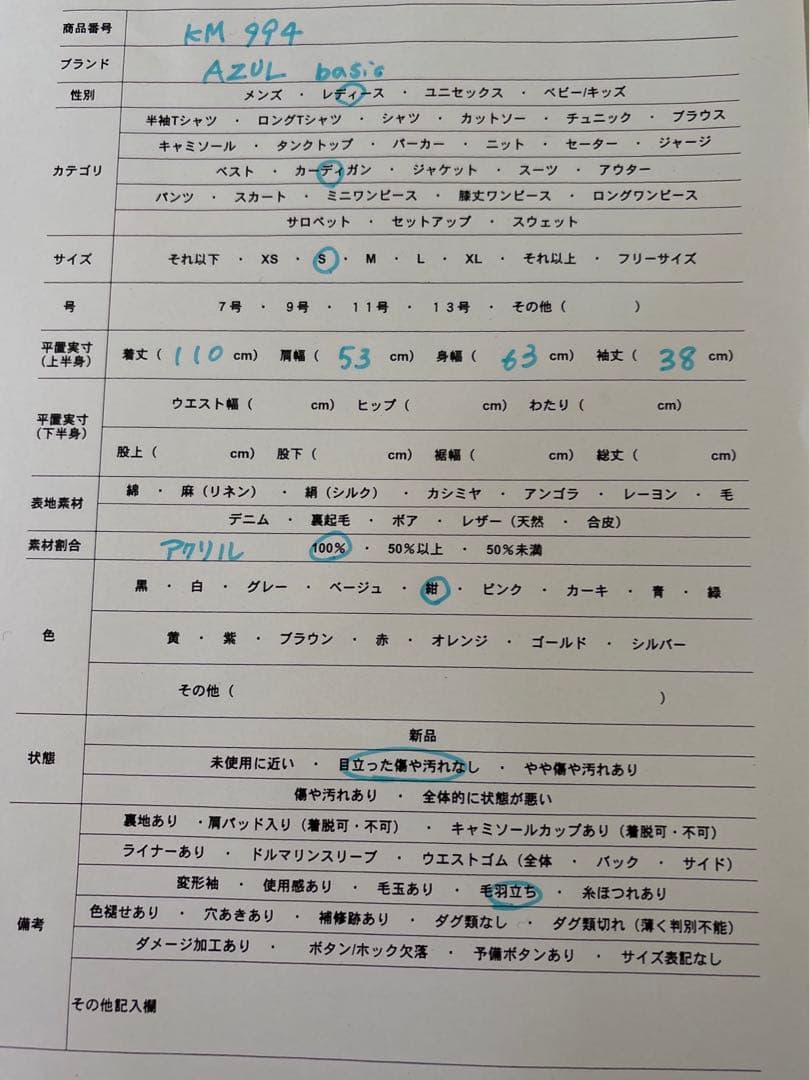 商品番号 KM 994
ブランド AZUL basic
性別 メンズ ・ レディース ・ ユニセックス ・ ベビー/キッズ
半袖Tシャツ ・ ロングTシャツ ・ シャツ ・ カットソー ・ チュニック ・ ブラウス
キャミソール ・ タンクトップ ・ パーカー ・ ニット ・ セーター ・ ジャージ
カテゴリ ベスト ・ カーディガン ・ ジャケット ・ スーツ ・ アウター
パンツ ・ スカート ・ ミニワンピース ・ 膝丈ワンピース ・ ロングワンピース
サロペット ・ セットアップ ・ スウェット
サイズ それ以下 ・ XS ・ S ・ M ・ L ・ XL ・ それ以上 ・ フリーサイズ
号 7号 ・ 9号 ・ 11号 ・ 13号 ・ その他（ ）
平置実寸
（上半身） 着丈（ 110 cm） 肩幅（ 53 cm） 身幅（ 63 cm） 袖丈（ 38 cm）
ウエスト幅（ cm） ヒップ（ cm） わたり（ cm）
平置実寸
（下半身）
股上（ cm） 股下（ cm） 裾幅（ cm） 総丈（ cm）
綿 ・ 麻（リネン） ・ 絹（シルク） ・ カシミヤ ・ アンゴラ ・ レーヨン ・ 毛
表地素材
デニム ・ 裏起毛 ・ ボア ・ レザー（天然 ・ 合皮）
素材割合 アクリル 100% ・ 50%以上 ・ 50%未満
黒 ・ 白 ・ グレー ・ ベージュ ・ 紺 ・ ピンク ・ カーキ ・ 青 ・ 緑
色 黄 ・ 紫 ・ ブラウン ・ 赤 ・ オレンジ ・ ゴールド ・ シルバー
その他（ ）
新品
状態 未使用に近い ・ 目立った傷や汚れなし ・ やや傷や汚れあり
傷や汚れあり ・ 全体的に状態が悪い
裏地あり ・肩パッド入り（着脱可・不可） ・ キャミソールカップあり（着脱可・不可）
ライナーあり ・ ドルマリンスリーブ ・ ウエストゴム（全体 ・ バック ・ サイド）
変形袖 ・ 使用感あり ・ 毛玉あり ・ 毛羽立ち ・ 糸ほつれあり
備考 色褪せあり ・ 穴あきあり ・ 補修跡あり ・ タグ類なし ・ タグ類切れ（薄く判別不能）
ダメージ加工あり ・ ボタン/ホック欠落 ・ 予備ボタンあり ・ サイズ表記なし
その他記入欄